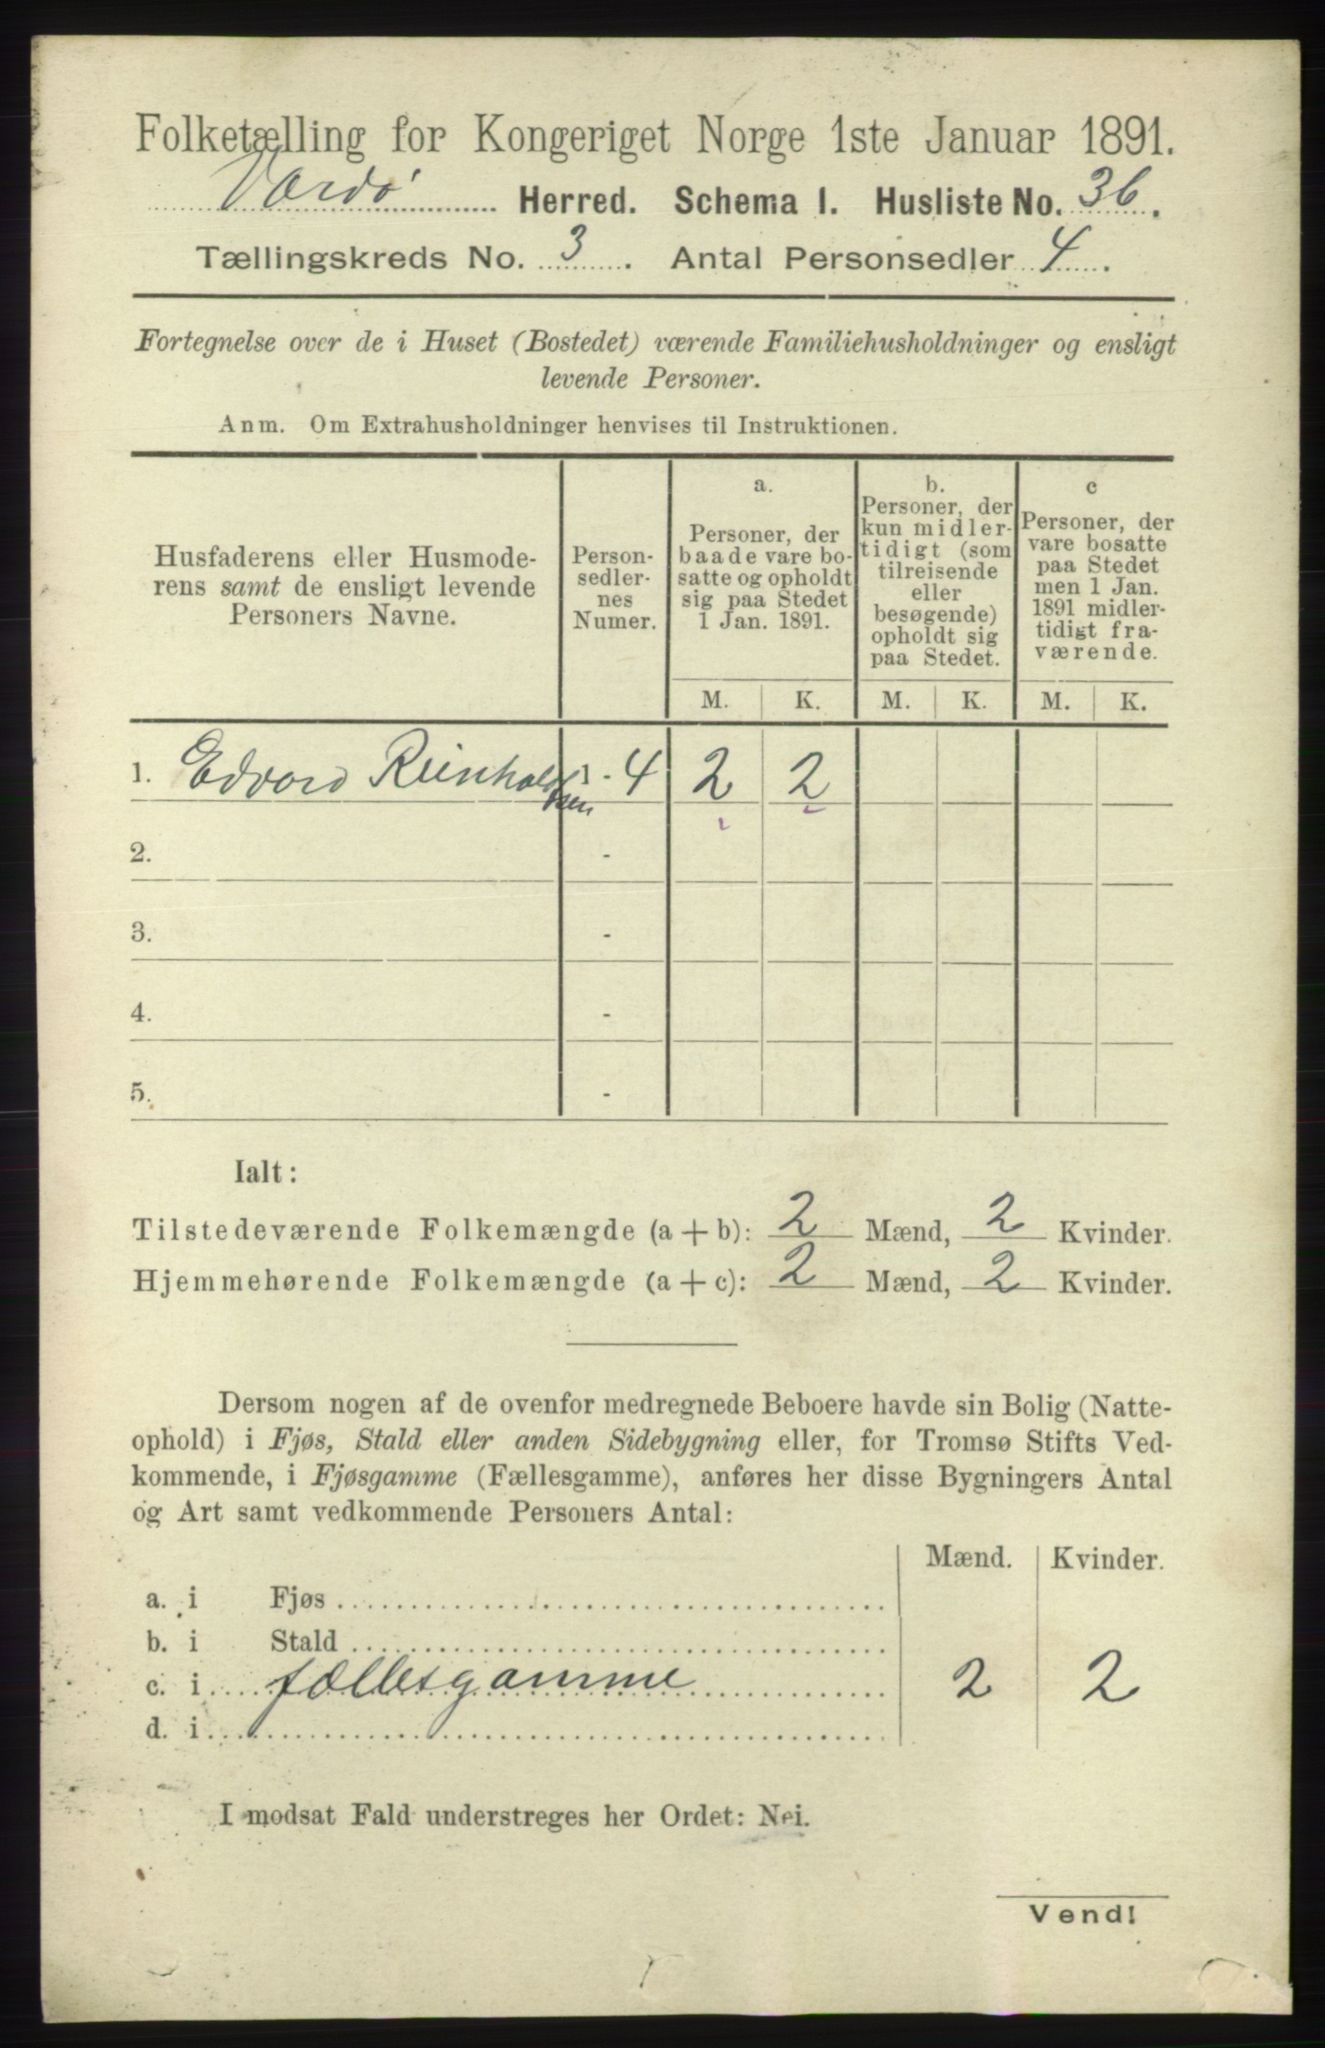 Folketælling for Kongeriget Norge 1ste Januar 1891.
Vardø Herred. Schema 1. Husliste No. 36.
Tællingskreds No. 3. Antal Personsedler 4.
Fortegnelse over de i Huset (Bostedet) værende Familiehusholdninger og ensligt
levende Personer.
Anm. Om Extrahusholdninger henvises til Instruktionen.
Husfaderens eller Husmode-
rens samt de ensligt levende
Personers Navne.
Person-
sedler-
nes
Numer.
a.
Personer, der
baade vare bo-
satte og opholdt
sig paa Stedet
1 Jan. 1891.
b.
Personer, der
kun midler-
tidigt (som
tilreisende
eller
besøgende)
opholdt sig
paa Stedet.
c
Personer, der
vare bosatte
paa Stedet
men 1 Jan.
1891 midler-
tidigt fra-
værende.
M. K. M. K. M. K.
1. Edvard Reinholdtsen 1 - 4 2 2
2. -
3. -
4. -
5. -
Ialt:
Tilstedeværende Folkemængde (a + b): 2 Mænd, 2 Kvinder.
Hjemmehørende Folkemængde (a + c): 2 Mænd, 2 Kvinder.
Dersom nogen af de ovenfor medregnede Beboere havde sin Bolig (Natte-
ophold) i Fjøs, Stald eller anden Sidebygning eller, for Tromsø Stifts Ved-
kommende, i Fjøsgamme (Fællesgamme), anføres her disse Bygningers Antal
og Art samt vedkommende Personers Antal:
Mænd. Kvinder.
a. i Fjøs
b. i Stald
c. i fællesgamme 2 2
d. i
I modsat Fald understreges her Ordet: Nei.
Vend!